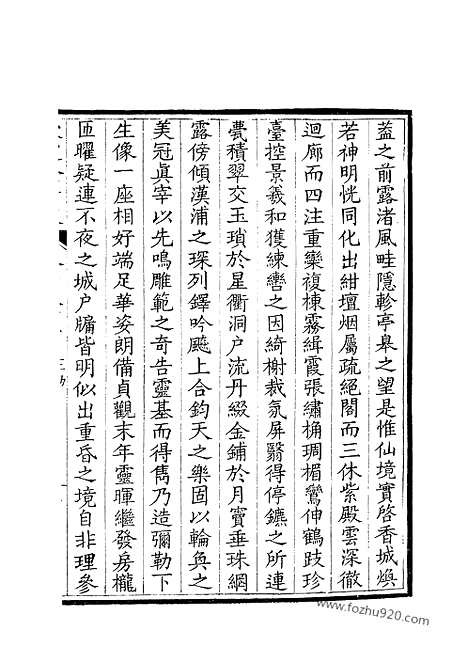 葢之前露渚風畦隱軫亭皋之望是惟仙境實啓香城煥
若神明恍同化出紺壇烟屬疏絕閣而三休紫殿雲深徹
迴廊而四注重欒複棟霧緝霞張繡桷琱楣鸞伸鶴跂珍
臺控景羲和獲練轡之因綺榭裁氛屏翳得停鑣之所連
甍積翠交玉瑣於星衢洞户流丹綴金鋪於月竇垂珠網
露傍傾漢浦之琛列鐸吟飈上合鈞天之樂固以輪奐之
美冠眞宰以先鳴雕範之奇告靈基而得雋乃造彌勒下
生像一座相好端足華姿朗備貞觀末年靈暉繼發房櫳
匝曜疑連不夜之城户牖皆明似出重昏之境自非理參
www.fozhu920.com